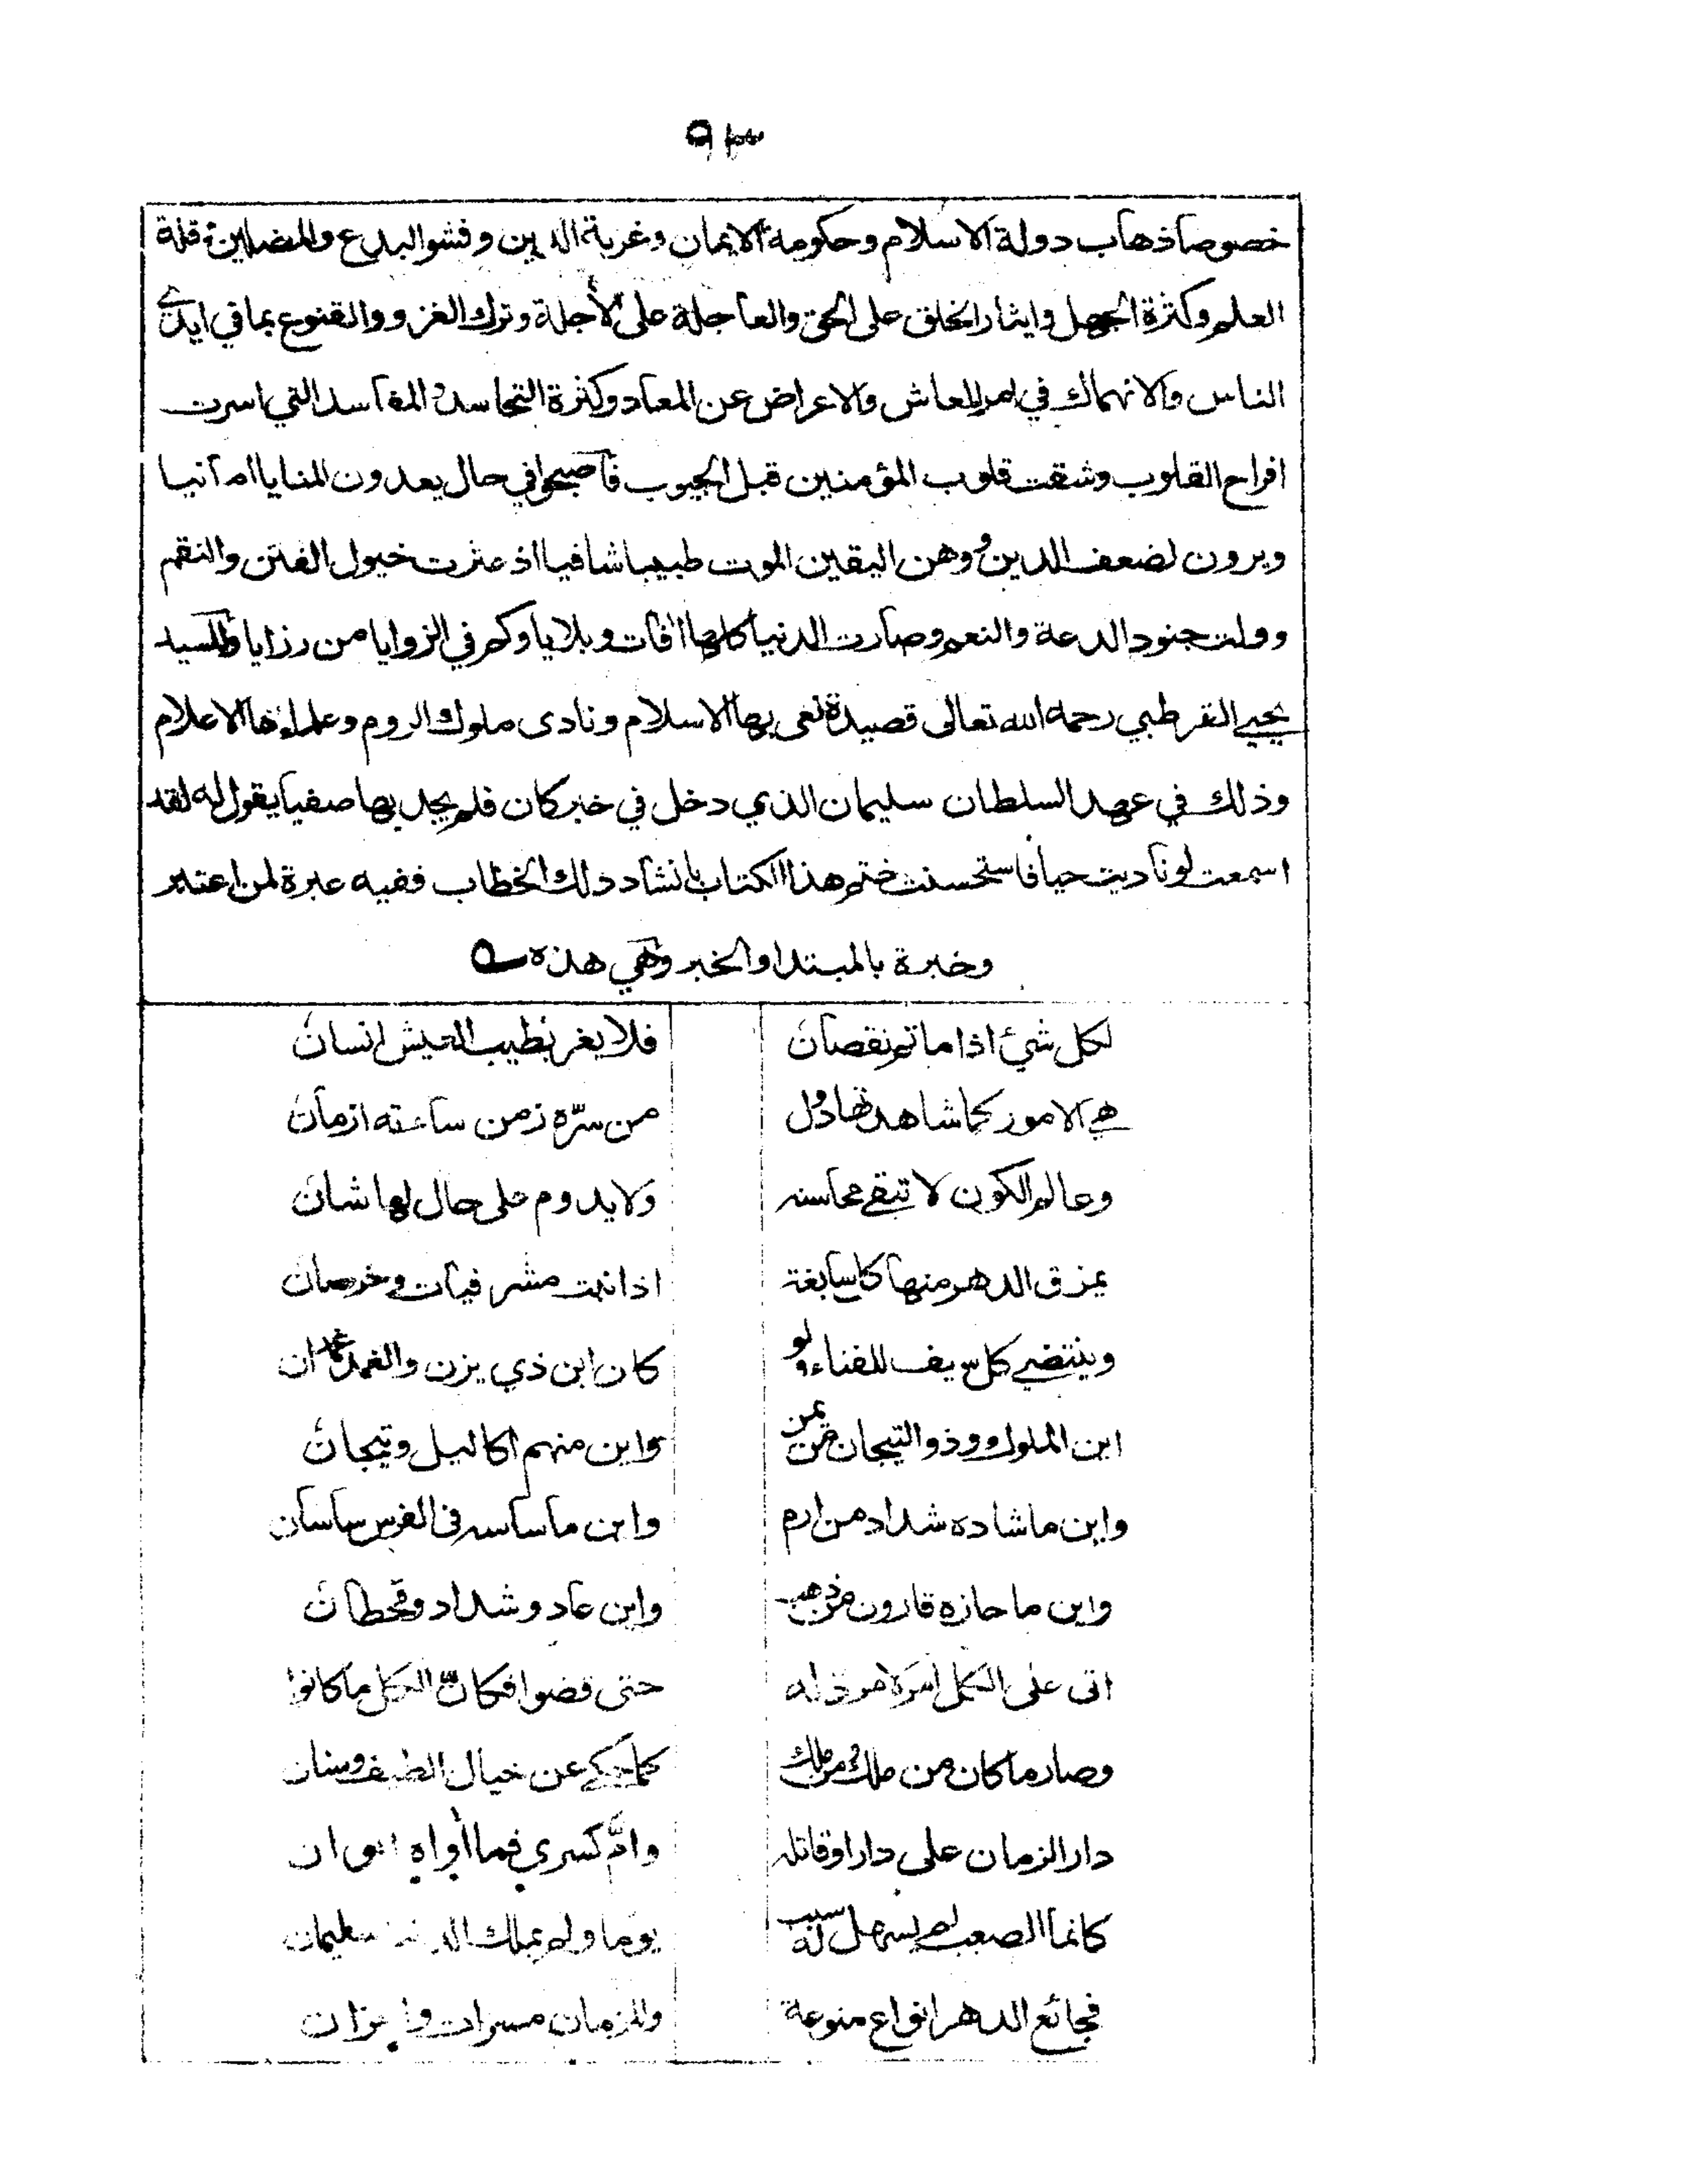 ٩٣
خصوصا ذهاب دولة الاسلام وحكومة الايمان وغربة الدين وفشو البدع والمضلين وقلة
العلم وكثرة الجهل وايثار الخلق على الحق والعاجلة على الأجلة وترك الغزو والقنوع بما في ايدي
الناس والانهماك في امر المعاش والاعراض عن المعاد وكثرة التحاسد والمفاسد التي اسرت
افراح القلوب وشقت قلوب المؤمنين قبل الجيوب فاصبحوا في حال يعدون المنايا امانيا
ويرون لضعف الدين ووهن اليقين الموت طبيبا شافيا اذ عثرت خيول الفتن والنقم
وولت جنود الدعة والنعم وصارت الدنيا كلها افات وبلايا وكم في الزوايا من رزايا وللسيد
يحيى القرطبي رحمه الله تعالى قصيدة نعى بها الاسلام ونادى ملوك الروم وعلماءها الاعلام
وذلك في عهد السلطان سليمان الذي دخل في خبر كان فلم يجد بها صفيا يقول له لقد
اسمعت لو ناديت حيا فاستحسنت ختم هذا الكتاب بانشاد ذلك الخطاب ففيه عبرة لمن اعتبر
وخبرة بالمبتدا والخبر وهي هذه
لكل شيء اذا ما تم نقصان فلا يغر بطيب العيش انسان
هي الامور كما شاهدتها دول من سرّه زمن ساءته ازمان
وعالم الكون لا تبقى محاسنه ولا يدوم على حال لها شان
يمزق الدهر منها كل سابغة اذا نبت مشرفيات وخرصان
وينتضي كل سيف للفناء ولو كان ابن ذي يزن والغمد غمدان
اين الملوك وذو التيجان من يمن واين منهم اكاليل وتيجان
واين ما شاده شداد من ارم واين ما ساسه في الفرس ساسان
واين ما حازه قارون من ذهب واين عاد وشداد وقحطان
اتى على الكل امر لا مرد له حتى قضوا فكانّ الكل ما كانوا
وصار ما كان من ملك ومن ملك كما حكى عن خيال الطيف وسنان
دار الزمان على دارا وقاتله وامّ كسرى فما أواه ايوان
كانما الصعب لم يسهل له سبب يوما ولم يملك الدنيا سليمان
فجائع الدهر انواع منوعة وللزمان مسرات واحزان